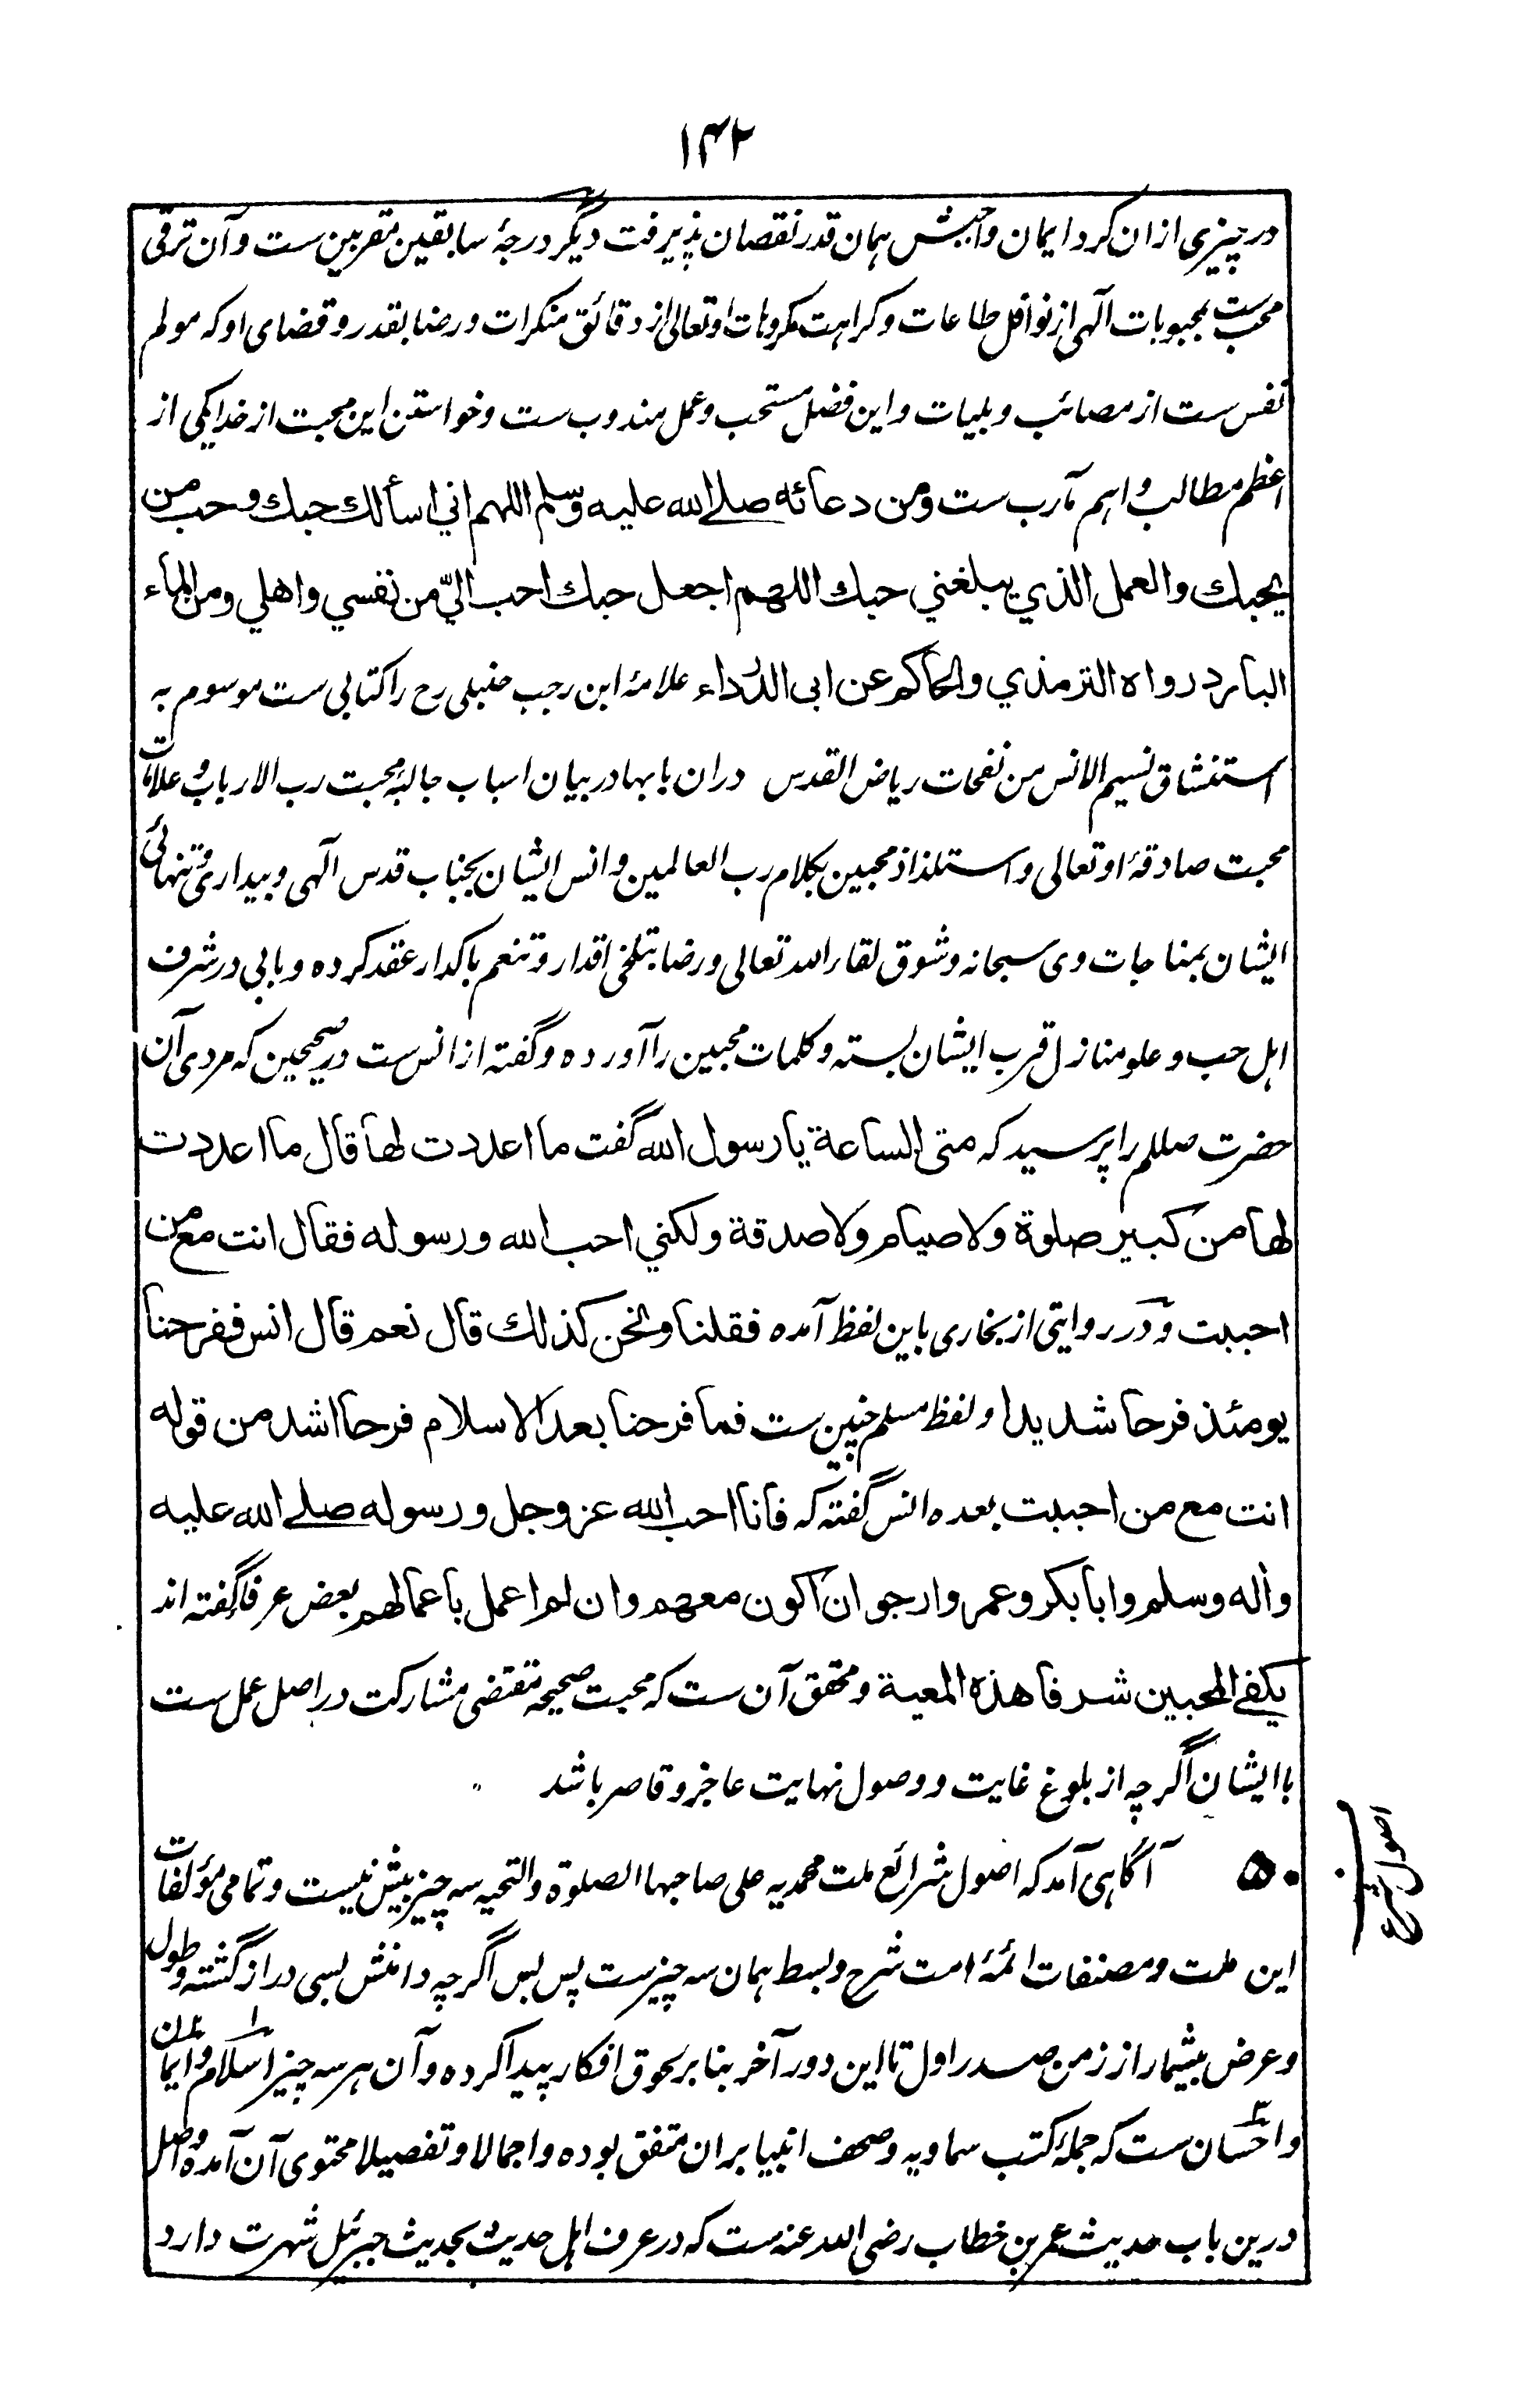 ۱۴۲
در چیزی ازان کرد ایمان واجبش همان قدر نقصان پذیرفت دیگر درجۀ سابقین مقربین ست و آن ترقی
محبت ست بمحبوبات آلهی از نوافل طاعات و کراهت مکروهات او تعالی از دقائق منکرات و رضا بقدر و قضای او که مولم
نفس ست از مصائب و بلیات و این فضل مستحب و عمل مندوب ست و خواستن این محبت از خدا یکی از
اعظم مطالب و اهم مآرب ست ومن دعائه صلے الله عليه وسلم اللهم اني اسألك حبك وحب من
يحبك والعمل الذي يبلغني حبك اللهم اجعل حبك احب اليّ من نفسي واهلي ومن الماء
البارد رواه الترمذي والحاكم عن ابى الدرداء علامۀ ابن رجب حنبلی رح را کتابی ست موسوم به
استنشاق نسیم الانس من نفحات ریاض القدس دران بابها در بیان اسباب جالبۀ محبت رب الارباب و علامات
محبت صادقۀ او تعالی و استلذاذ محبین بکلام رب العالمین و انس ایشان بجناب قدس آلهی و بیداری و تنهائی
ایشان بمناجات وی سبحانه و شوق لقاء الله تعالی و رضا بتلخی اقدار و تنعم باکدار عقد کرده و بابی در شرف
اهل حب و علو منازل قرب ایشان بسته و کلمات محبین را آورده و گفته از انس ست در صحیحین که مردی آن
حضرت صللم را پرسید که متى الساعة يا رسول الله گفت ما اعددت لها قال ما اعددت
لها من كبير صلوة ولا صيام ولا صدقة ولكني احب الله ورسوله فقال انت مع من
احببت و در روایتی از بخاری باین لفظ آمده فقلنا ونحن كذلك قال نعم قال انس ففرحنا
يومئذ فرحا شديدا و لفظ مسلم چنین ست فما فرحنا بعد الاسلام فرحا اشد من قوله
انت مع من احببت بعده انس گفته که فانا احب الله عز وجل ورسوله صلے الله عليه
وأله وسلم وابا بكر وعمر وارجو ان اكون معهم وان لم اعمل باعمالهم بعض عرفا گفته اند
يكفے المحبين شرفا هذه المعية و محقق آن ست که محبت صحیحه مقتضی مشارکت در اصل عمل ست
با ایشان اگرچه از بلوغ غایت و وصول نهایت عاجز و قاصر باشد
۵۰ آگاهی آمد که اصول شرائع ملت محمدیه علی صاحبها الصلوة والتحیه سه چیز بیش نیست و تمامی مؤلفات
اصول شرع
این ملت و مصنفات ائمۀ امت شرح و بسط همان سه چیز ست پس بس اگرچه دامنش بسی دراز گشته و طول
و عرض بیشمار از زمن صدر اول تا این دور آخر بنا بر لحوق افکار پیدا کرده و آن هر سه چیز اسلام و ایمان
و احسان ست که جملۀ کتب سماویه و صحف انبیا بران متفق بوده و اجمالا و تفصیلا محتوی آن آمده و اصل
درین باب حدیث عمر بن خطاب رضی الله عنه ست که در عرف اهل حدیث بحدیث جبرئیل شهرت دارد